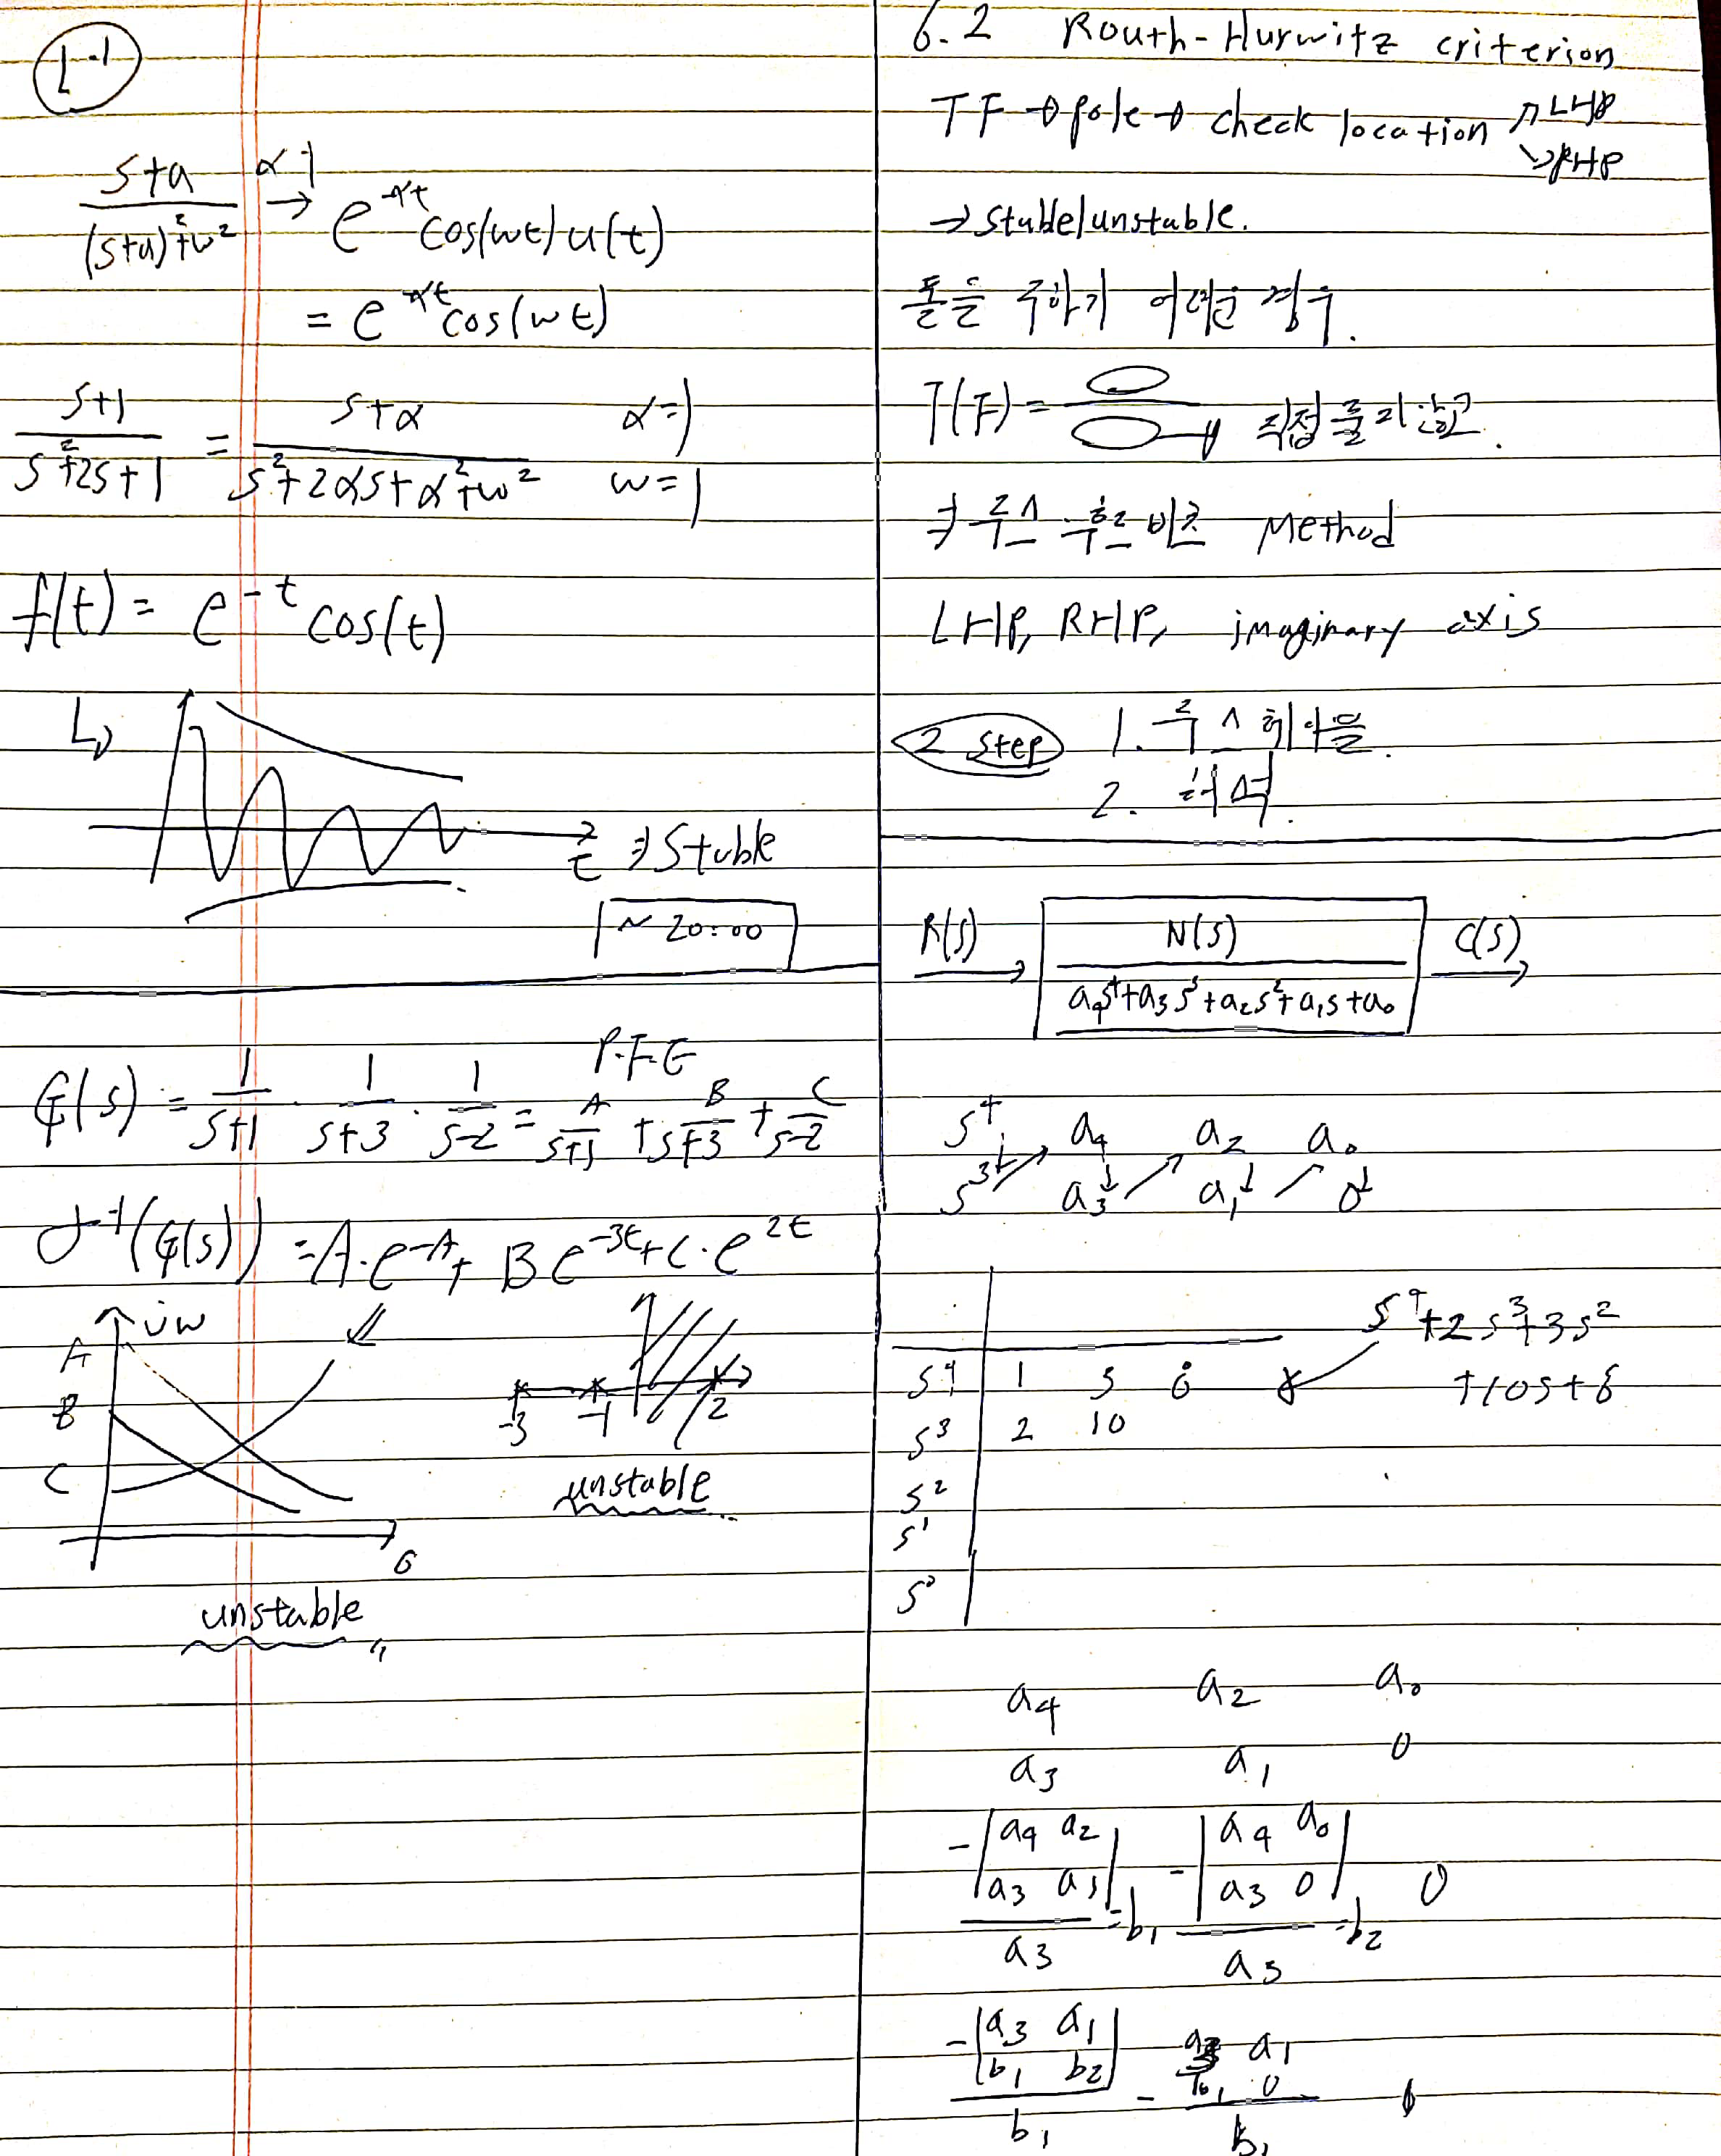 L⁻¹
s+a / (s+a)²+w² → e^-αt cos(wt)u(t)
= e^-αt cos(wt)
s+1 / s²+2s+1 = s+α / s²+2αs+α²+w² α=1 w=1
f(t) = e^-t cos(t)
t ⇒ Stable
~ 20:00
P.F.E
G(s) = 1/s+1 · 1/s+3 · 1/s-2 = A/s+1 + B/s+3 + C/s-2
L⁻¹(G(s)) = A·e^-t + Be^-3t + C·e^2t
jw
A
B
C
σ
unstable
-3 -1 2
unstable
6.2 Routh-Hurwitz criterion
TF → pole → check location ↗ LHP
↘ RHP
→ stable/unstable.
폴을 구하기 어려운 경우.
T(F) = 직접 풀지 않고.
⇒ 루스 훌비츠 Method
LHP, RHP, imaginary axis
2 step 1. 루스
2. 해석.
R(s) → N(s) / a₄s⁴+a₃s³+a₂s²+a₁s+a₀ → C(s)
s⁴ a₄ a₂ a₀
s³ a₃ a₁ 0
s⁴+2s³+3s²
+10s+6
s⁴ 1 3 6
s³ 2 10
s²
s¹
s⁰
a₄ a₂ a₀
a₃ a₁ 0
-|a₄ a₂; a₃ a₁| / a₃ = b₁ -|a₄ a₀; a₃ 0| / a₃ = b₂ 0
-|a₃ a₁; b₁ b₂| / b₁ - a₃ a₁; b₁ 0 / b₁ 0